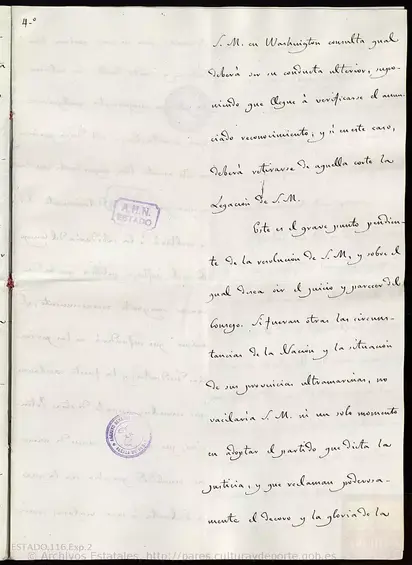 4.º
S. M. en Washington consulta qual
deberá ser su conducta ulterior, supo-
niendo que llegue á verificarse el anun-
ciado reconocimiento, y si en este caso,
deberá retirarse de aquella corte la
Legacion de S. M.
Este es el grave punto pendien-
te de la resolucion de S. M., y sobre el
qual desea oir el juicio y parecer del
Consejo. Si fueran otras las circuns-
tancias de la Nacion y la situacion
de sus provincias ultramarinas, no
vacilaria S. M. ni un solo momento
en adoptar el partido que dicta la
justicia, y que reclaman poderosa-
mente el decoro y la gloria de la
A.H.N.
ESTADO
ESTADO,116,Exp.2
© Archivos Estatales, http://pares.culturaydeporte.gob.es